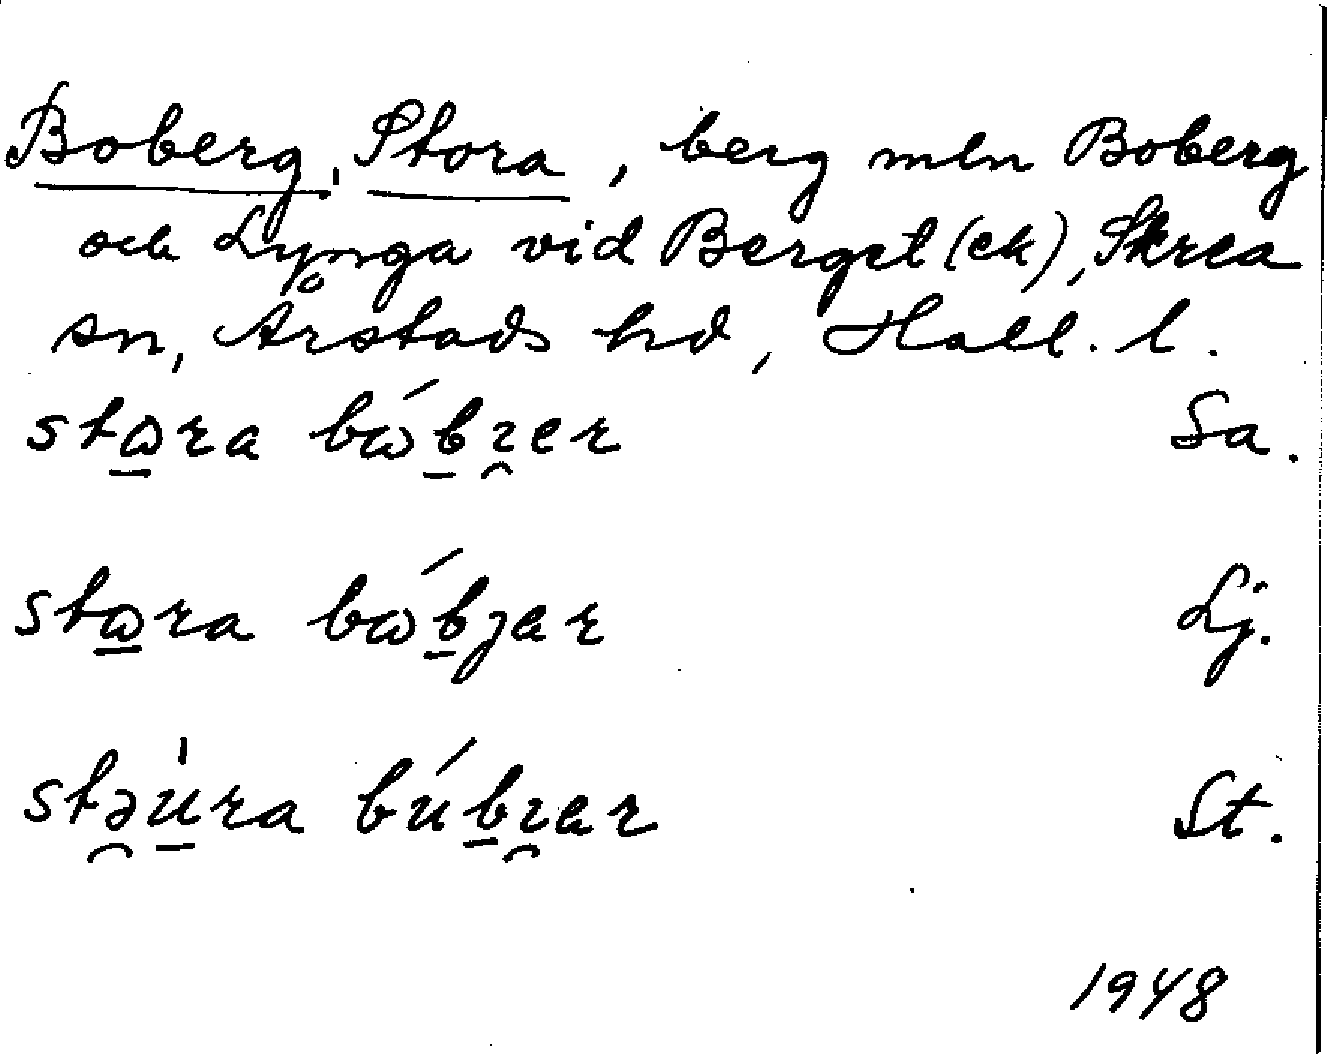 Boberg, Stora, berg mln Boberg
och Lynga vid Berget (ek), Skrea
sn, Årstads hd, Hall. l.
stω̲ra bώb̲ɪ̯er Sa.
stω̲ra bώb̲jer Lj.
stə̯u̲̍ra búb̲ɪ̯er St.
1948